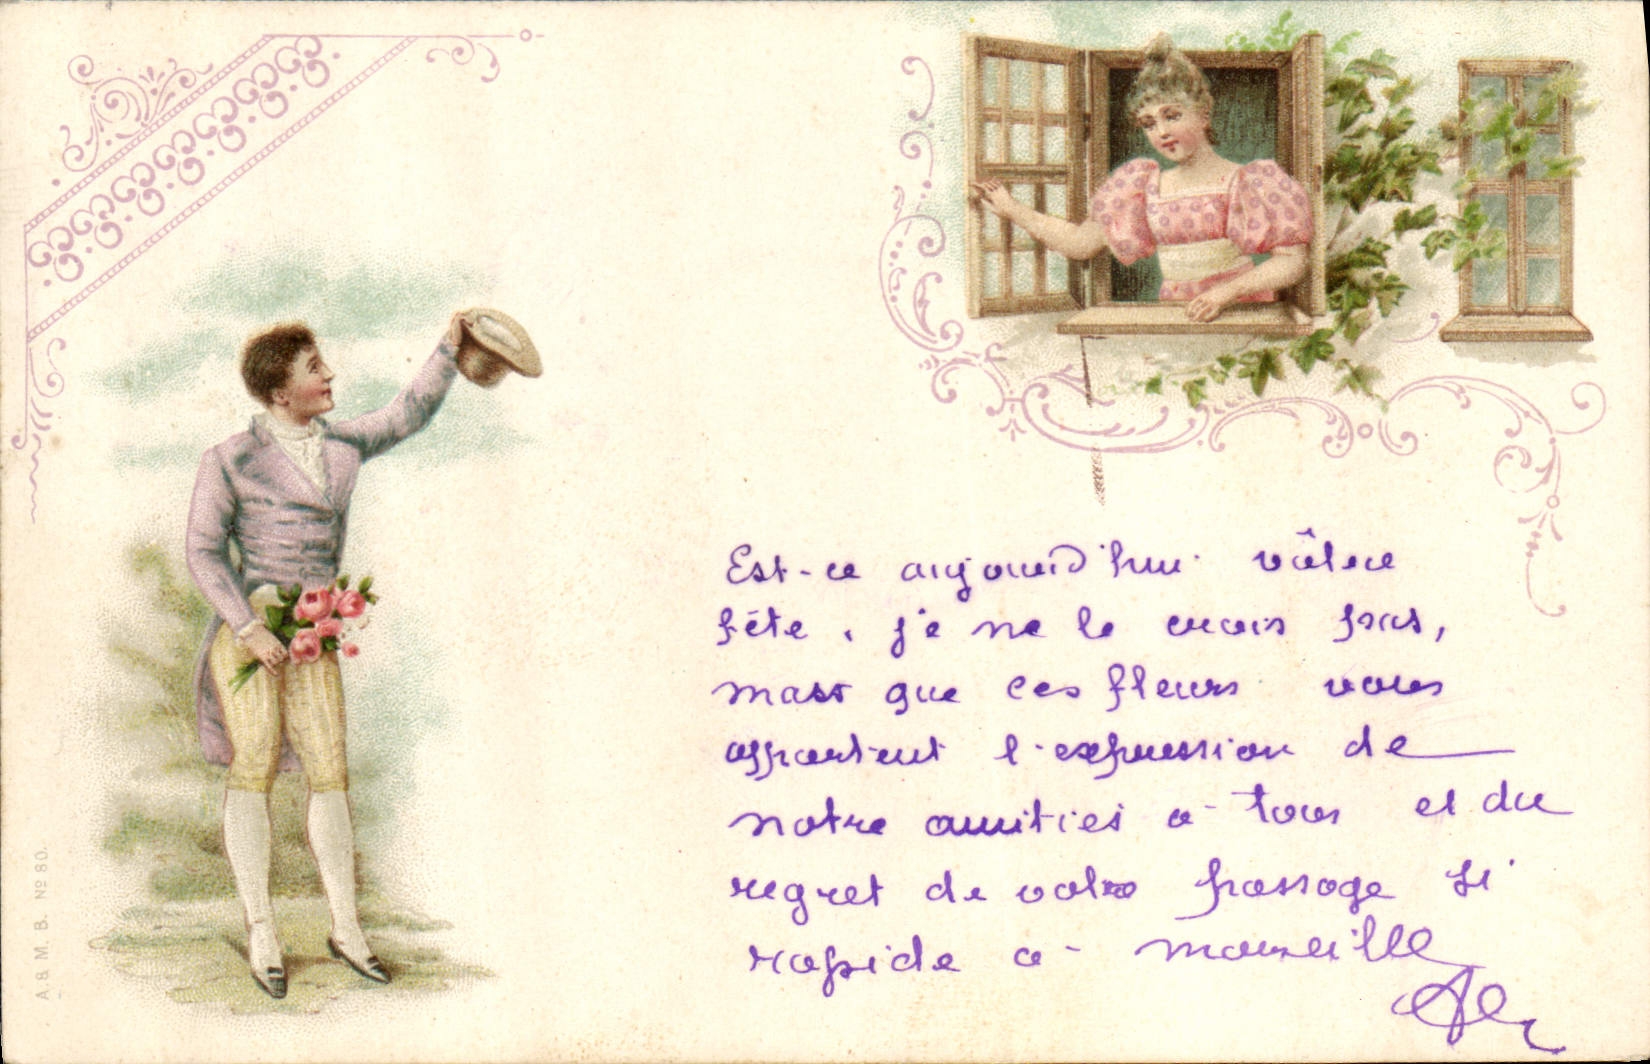 Est-ce aujourd'hui vôtre
fête, je ne le crois pas,
mais que ces fleurs vous
apportent l'expression de
notre amitiés a tous et du
regret de votre passage si
rapide a Marseille
A & M. B. Nº 80.